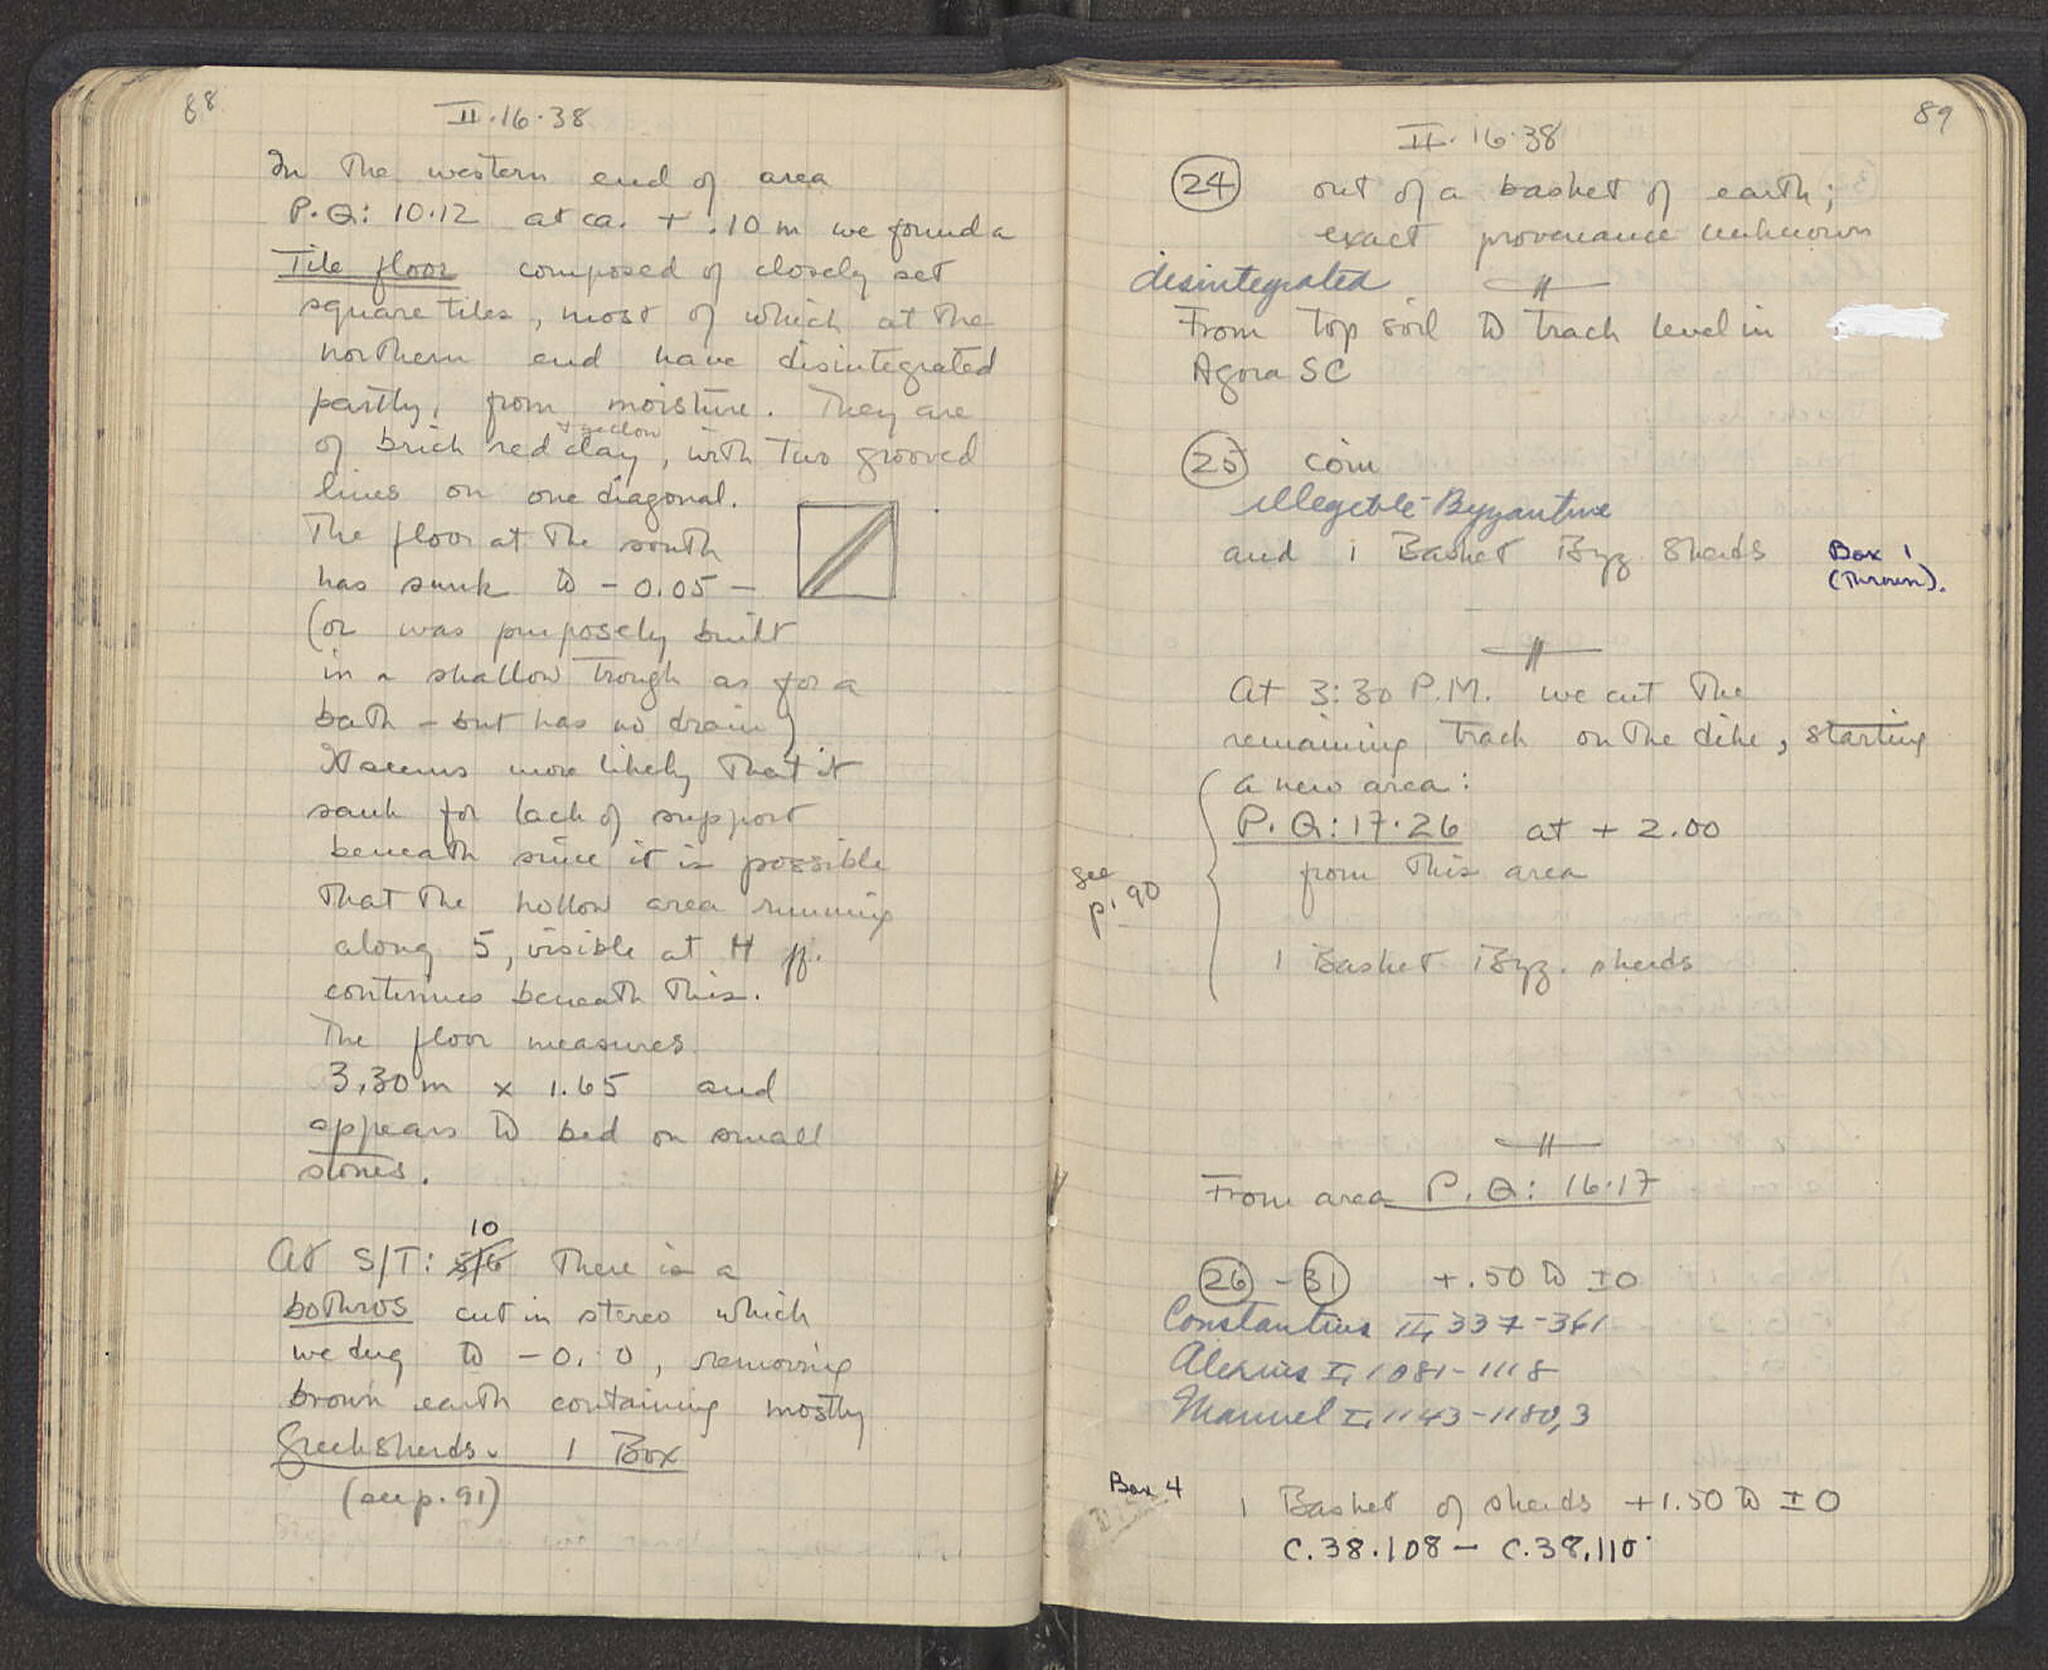 88
II.16.38
In the western end of area
P.Q: 10.12 at ca. + .10 m we found a
Tile floor composed of closely set
square tiles, most of which at the
northern end have disintegrated
partly, from moisture. They are
+ yellow
of brick red clay, with two grooved
lines on one diagonal.
The floor at the south
has sunk to - 0.05 -
(or was purposely built
in a shallow trough as for a
bath - but has no drain)
It seems more likely that it
sank for lack of support
beneath since it is possible
that the hollow area running
along 5, visible at H ff.
continues beneath this.
The floor measures
3.30 m x 1.65 and
appears to bed on small
stones.
10
At S/T: 5/6 there is a
bothros cut in stereo which
we dug to - 0. 0, removing
brown earth containing mostly
Greek sherds. 1 Box
(see p. 91)
89
II. 16.38
24 out of a basket of earth;
exact provenance unknown
disintegrated
From top soil to track level in
Agora SC
25 coin
illegible - Byzantine
and 1 Basket Byz. Sherds
Box 1
(thrown).
At 3:30 P.M. we cut the
remaining track on the dike, starting
a new area:
P.Q: 17.26 at + 2.00
from this area
see
p. 90
1 Basket Byz. sherds
From area P.Q: 16.17
26 - 31 +.50 to ±0
Constantius II, 337-361
Alexius I, 1081-1118
Manuel I, 1143-1180, 3
Box 4
1 Basket of sherds +1.50 to ±0
C.38.108 - C.38.110